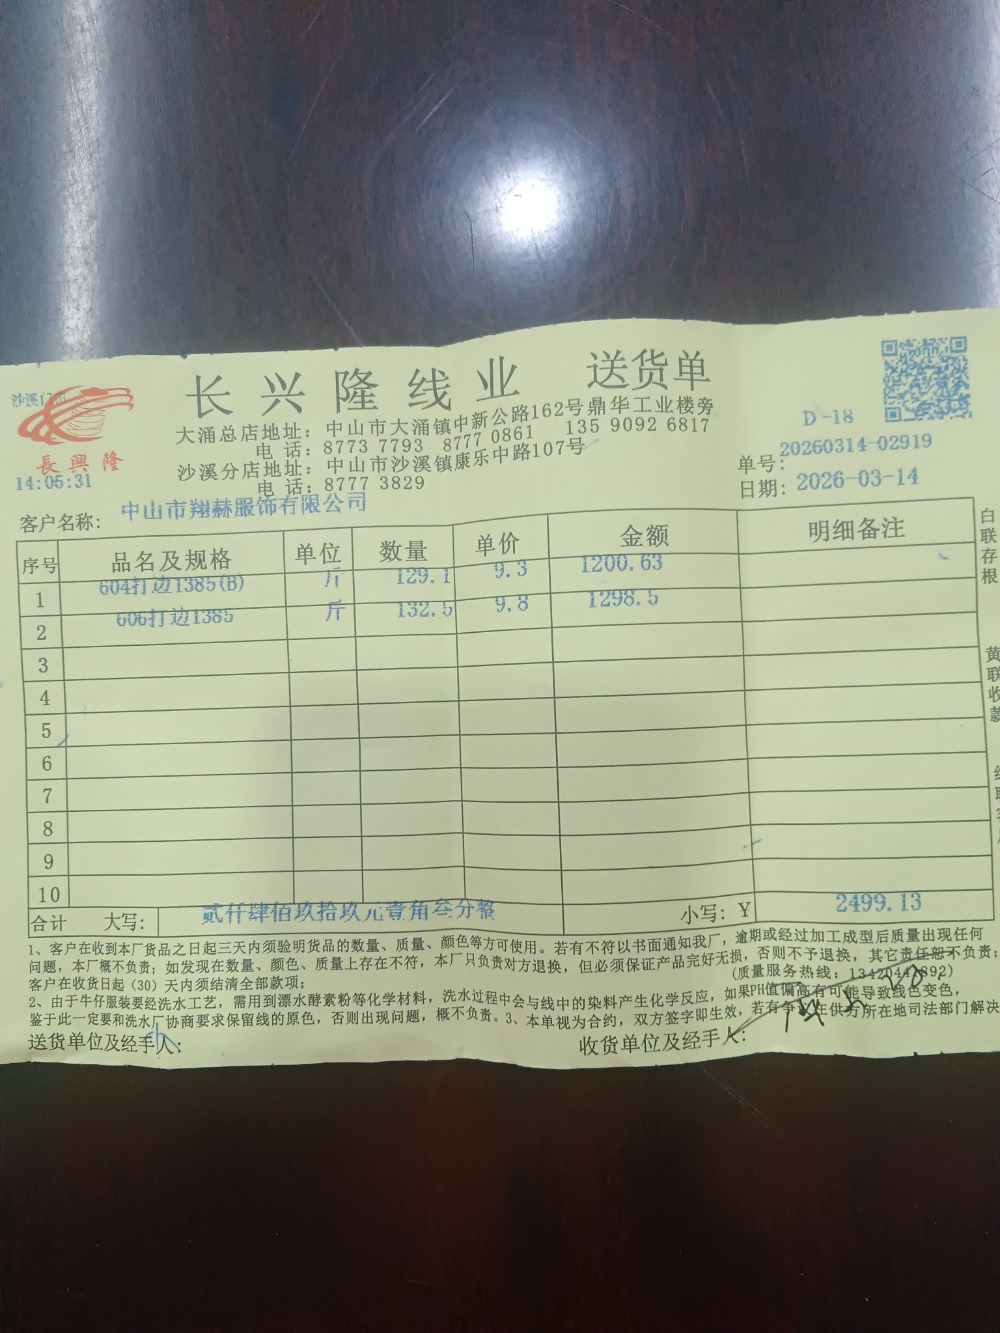 长兴隆线业 送货单
D-18
大涌总店地址：中山市大涌镇中新公路162号鼎华工业楼旁
电 话：8773 7793 8777 0861 135 9092 6817
沙溪分店地址：中山市沙溪镇康乐中路107号
电 话：8777 3829
長興隆
14:05:31
单号：20260314-02919
日期：2026-03-14
客户名称：中山市翔赫服饰有限公司
序号 品名及规格 单位 数量 单价 金额 明细备注
1 604打边1385(B) 斤 129.1 9.3 1200.63
2 606打边1385 斤 132.5 9.8 1298.5
3
4
5
6
7
8
9
10
合计 大写：贰仟肆佰玖拾玖元壹角叁分整 小写：￥ 2499.13
1、客户在收到本厂货品之日起三天内须验明货品的数量、质量、颜色等方可使用。若有不符以书面通知我厂，逾期或经过加工成型后质量出现任何
问题，本厂概不负责；如发现在数量、颜色、质量上存在不符，本厂只负责对方退换，但必须保证产品完好无损，否则不予退换，其它责任恕不负责；
客户在收货日起（30）天内须结清全部款项；
(质量服务热线：
2、由于牛仔服装要经洗水工艺，需用到漂水酵素粉等化学材料，洗水过程中会与线中的染料产生化学反应，如果PH值偏高有可能导致线色变色，
鉴于此一定要和洗水厂协商要求保留线的原色，否则出现问题，概不负责。3、本单视为合约，双方签字即生效，若有争议在供方所在地司法部门解决
送货单位及经手人：
收货单位及经手人：
白联存根
黄联收款